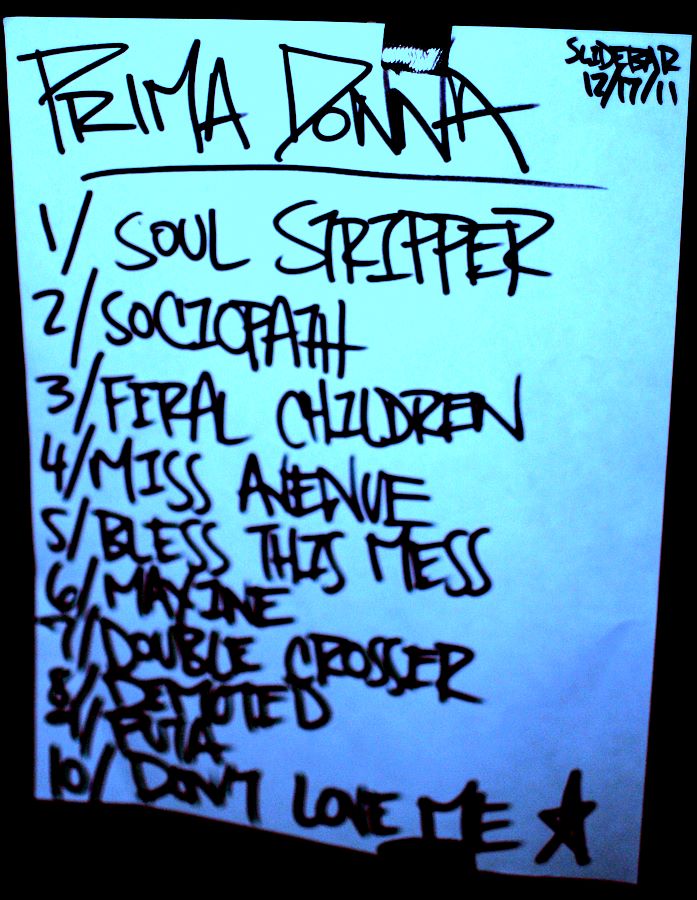 PRIMA DONNA
SLIDEBAR
12/17/11
1/ SOUL STRIPPER
2/ SOCIOPATH
3/ FERAL CHILDREN
4/ MISS AVENUE
5/ BLESS THIS MESS
6/ MAXINE
7/ DOUBLE CROSSER
8/ DEMOTED
9/ PUTA
10/ DON'T LOVE ME